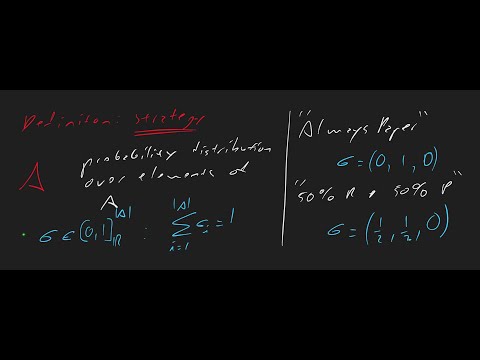 Definison: strategy
A probability distribution
over elements of
A
σ ∈ [0,1]_ℝ^|A| : ∑_{i=1}^{|A|} σ_i = 1
"Always Paper"
σ = (0, 1, 0)
"50% R & 50% P"
σ = (1/2, 1/2, 0)